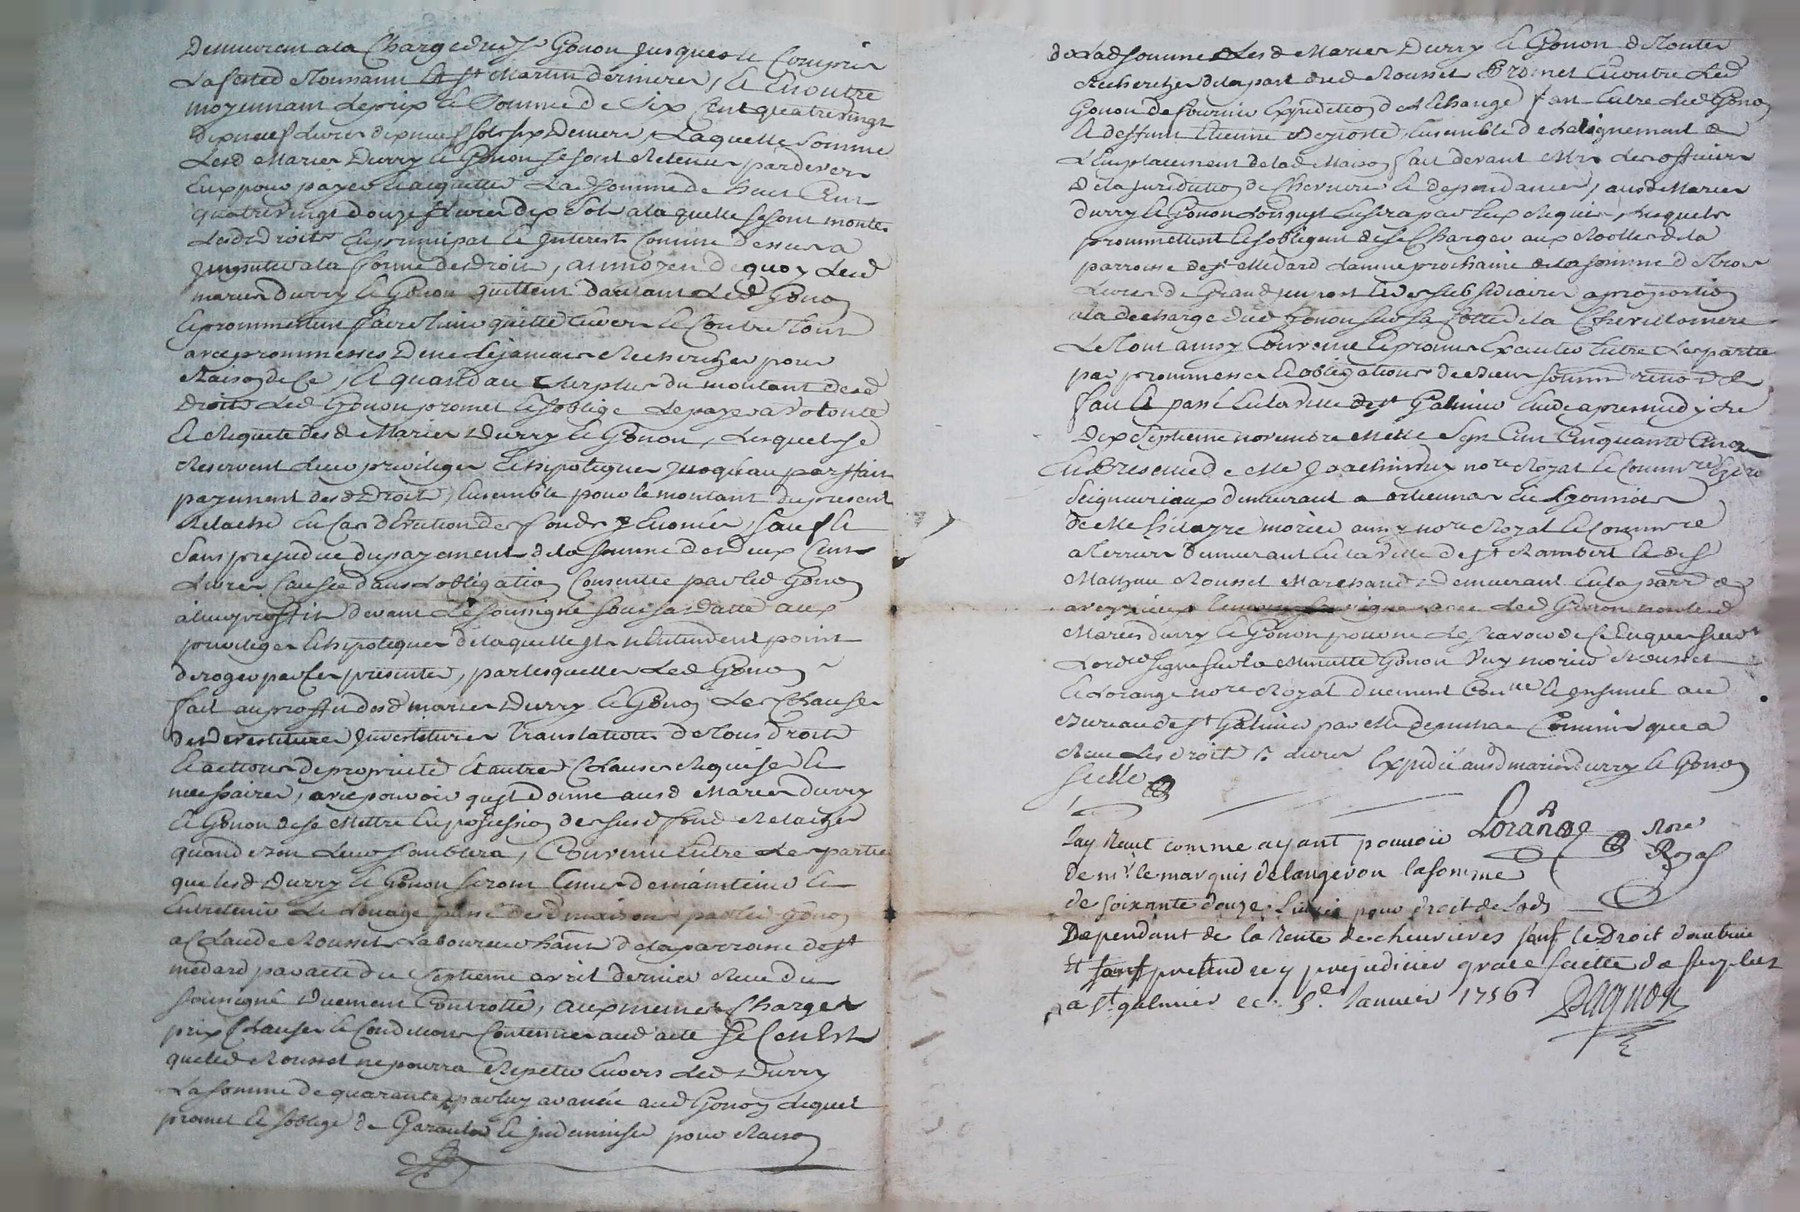 Demeurent a la Charge dud Sr Gonon jusques et Compris
la feste de Toussaint et St Martin dernieres, et En outre
moyennant le prix et Somme de Six Cent quatrevingt
dix neuf livres dix neuf sols six Deniers, Laquelle Somme
Lesd Maries Durry et Gonon se sont Retenus pardevers
Eux pour payer et acquitter Lad somme de huit Cent
quatrevingt douze livres dix sols a laquelle se sont montes
Lesd Droits En principal et Interest Comme Dessus a
Imputer a la forme de droit, au moyen de quoy Lesd
maries durry et Gonon quittent d'autant Led Gonon
et promettent faire tenir quitte Envers et Contre Tous
avec promesses De ne le jamais Rechercher pour
Raison de Ce, Et quand au surplus du montant desd
Droits Led Gonon promet et s'oblige Le payer a Volonté
et Requete desd Maries Durry et Gonon, Lesquels se
Reservent Leurs privileges et hipoteques jusqu'au parffait
payement desd Droits, Ensemble pour le montant du present
Relaché En Cas d'Eviction des fonds y Enoncés, sauf et
sans prejudice du payement de la somme de deux Cent
Livres Causée dans L'obligation Consentie par led Gonon
a leur proffit devant Le soussigné sous sa datte aux
privileges et hipoteques de laquelle ils n'Entendent point
deroger par Ces presentes, par lesquelles Led Gonon
fait au proffit desd maries Durry et Gonon Les Clauses
de devestitures Investitures Translations de Tous droits
et actions de proprieté et autres Clauses Requises et
necessaires, avec pouvoir qu'il Donne ausd Maries Durry
et Gonon de se Mettre En possession desd fonds Relachés
quand bon Leur semblera, Convenu Entre Les parties
que lesd Durry et Gonon seront Tenus de maintenir et
Entretenir Le Louage passé desd maisons par led Gonon
a Claude Rousset Laboureur hant de la parroisse de St
medard par acte du Septieme avril dernier Receu du
soussigné Duement Controllé, aux memes Charges
prix Clauses et Conditions Contenues aud acte si Ce n'Est
que led Rousset ne pourra Repeter Envers Led Durry
La somme de quarante par luy avancée aud Gonon lequel
promet et s'oblige de Garantir et indemniser pour Raison
de lad somme Lesd Maries Durry et Gonon de Toutes
Recherches de la part dud Rousset Promet En outre Led
Gonon de fournir Expedition de L'Echange fait Entre Led Gonon
et deffunt Etienne Ensemble de L'alignement de
L'Emplacement de lad Maison fait devant Mrs Les officiers
de la Juridiction de Chevriere et dependances, ausd Maries
durry et Gonon Lorsqu'il En sera par Eux Requis, Lesquels
promettent et s'obligent de se Charger aux Rolles de la
parroisse de St Medard L'année prochaine de la somme de Trois
Livres de Grand Livres subsidiaires a proportion
a la decharge dud Gonon sur sa Cotte de la
Le Tout ainsy Convenu et promis Executer Entre Les parties
par promesses et obligations de biens
fait et passé En la Ville de St Galmier Etude apres midy Le
Dix Septieme novembre Mille Sept Cent Cinquante Cinq
En Presence de Me nore Royal et Commre
Seigneuriaux demeurant a En Lyonnois
de Me hilayre morier aussy nore Royal et Commre
a Terrier Demeurant En la ville de St Rambert et de Sr
Mathieu Rousset Marchand Demeurant En la parr de
aveyzieux Temoins soussignés avec Led Gonon non lesd
Maries durry et Gonon pour ne Le sçavoir de Ce Enquis suivt
L'ordce signé sur la Minutte Gonon morier Rousset
et Lorange nore Royal duement Controllé et Insinué au
Bureau de St Galmier par Me Commis qui a
Receu Les Droits Livres Expedié ausd maries Durry et Gonon
scellé
Lorange nore Royal
J'ay Receut comme ayant pouvoir
de mr le marquis de langeron la somme
de soixante douze Livres pour droit de Lods
Dependant de la Rente de chevrieres sauf le Droit d'autruie
et sans pretendre y prejudicier grace faitte de surplus
a St galmier ce 5e Janvier 1756
Dagnon